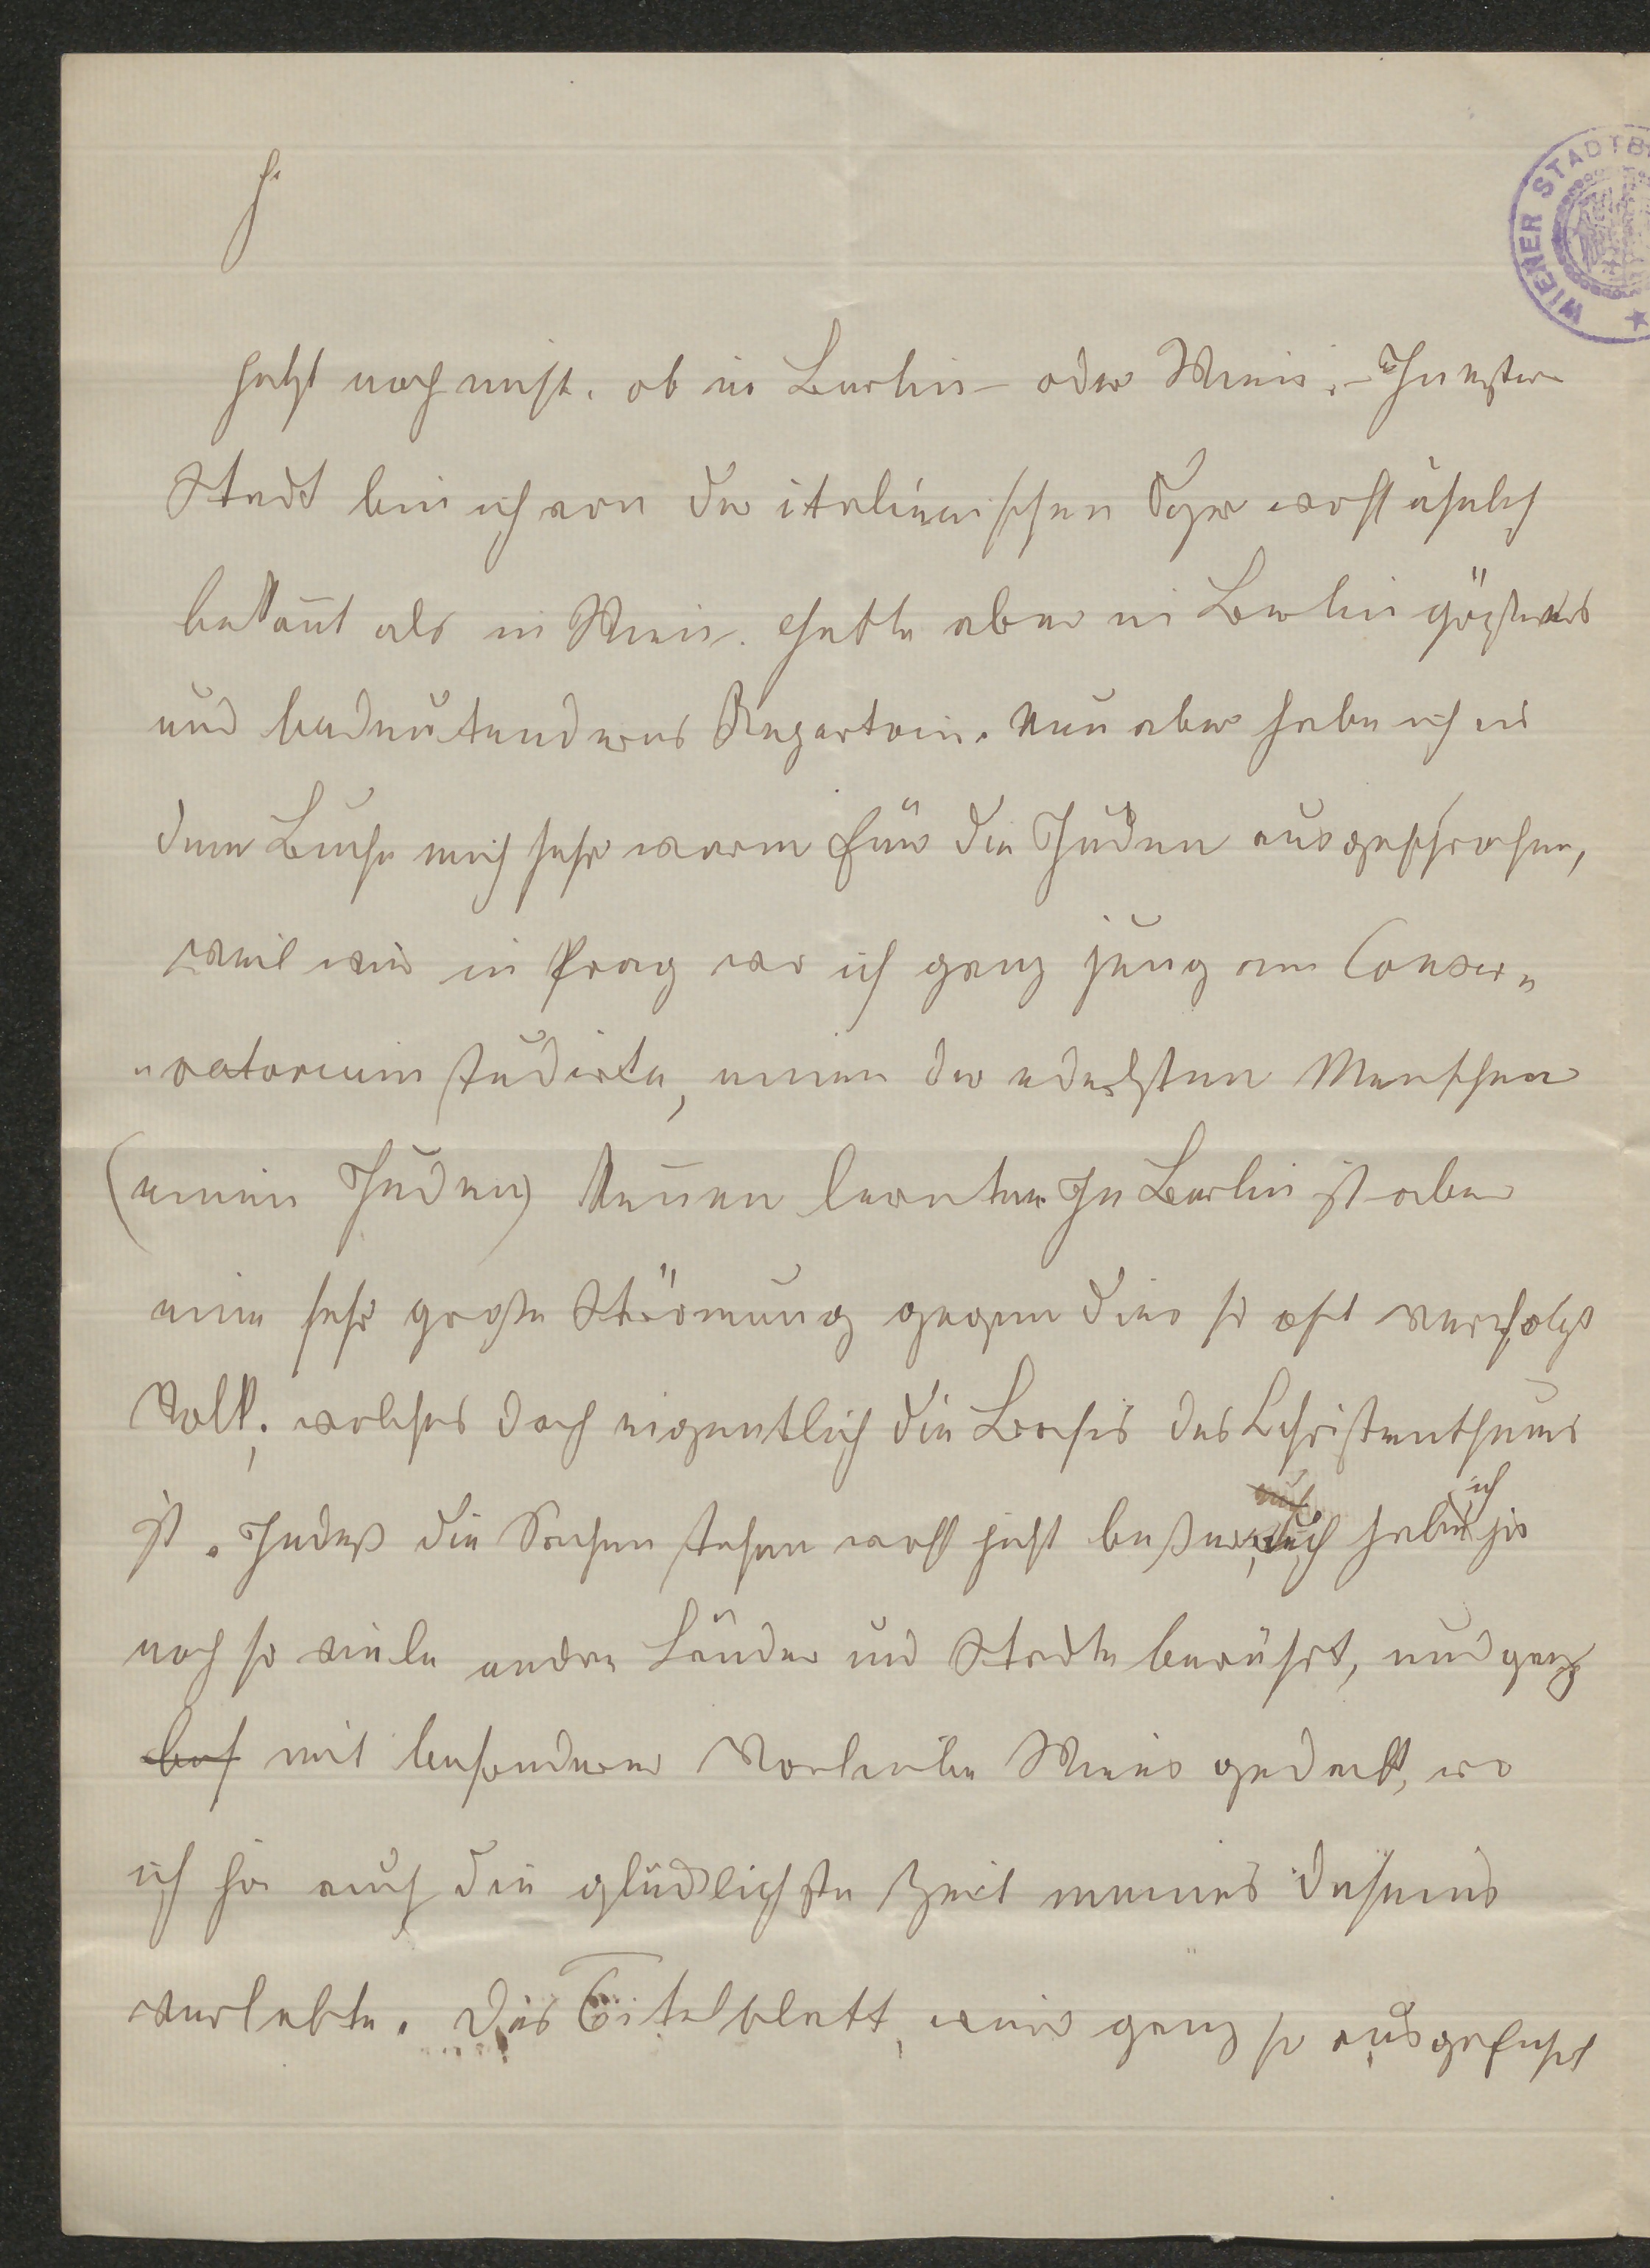 WIENER STADTB
jetzt noch nicht, ob in Berlin – oder Wien. – In erster
Stadt bin ich von der italienischen Oper wohl ähnlich
bekannt als in Wien. hatte aber in Berlin größeres
und bedeutenderes Repertoir. Nun aber habe ich in
dem Buche mich sehr warm für die Juden ausgesprochen,
weil wir in Prag wo ich ganz jung am Conser„
„vatorium studirte, einen der edelsten Menschen
(einen Juden) kennen lernten. In Berlin ist aber
eine sehr große Strömung gegen dies so oft verfolgt
Volk; welches doch eigentlich die Basis des Christenthums
ist. Indeß die Sachen stehen wohl jetzt beßer, auch habe ich ja
noch so viele andre Länder und Städte berührt, und ganz
mit besonderer Vorliebe Wiens gedacht, wo
ich ja auch die glücklichste Zeit meines Daseins
verlebte. Das Titelblatt, wird ganz so ausgeführt